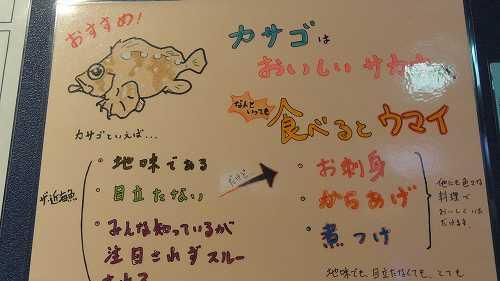 おすすめ!
カサゴは
おいしいサカナ
なんと
いっても
食べるとウマイ
カサゴといえば…
・地味である
・目立たない
・みんな知っているが
注目されずスルー
される
だけど
・お刺身
・からあげ
・煮つけ
他にも色々な
料理で
おいしくいた
だけます
地味でも、目立たなくても、とても